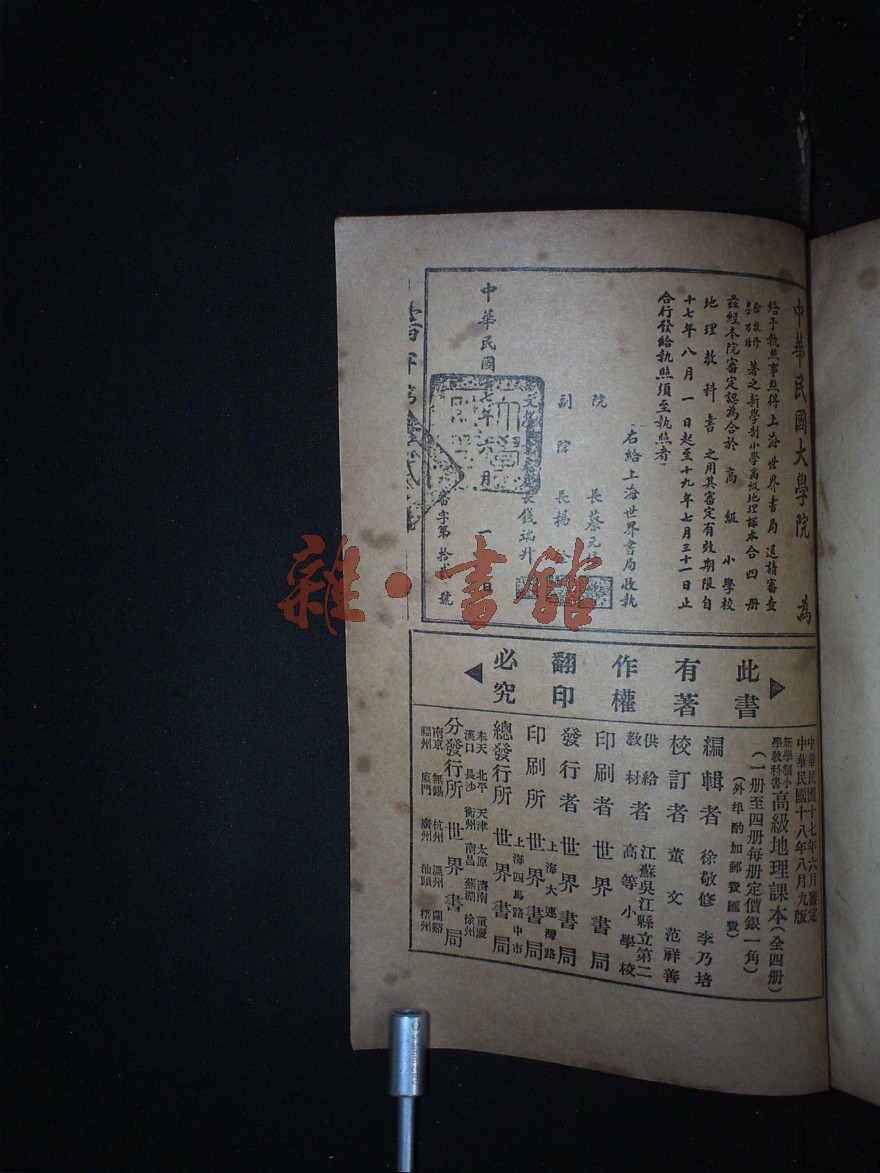 中華民國大學院 為
給予執照事照得上海世界書局送請審查
著之新學制小學高級地理課本合四冊
茲經本院審定認為合於高級小學校
地理教科書之用其審定有效期限自
十七年八月一日起至十九年七月三十一日止
合行發給執照須至執照者
右給上海世界書局收執
院長蔡元培
副院長楊
長錢端升
中華民國十七年六月一日
審字第拾弍號
雜·書館
此書有著作權翻印必究
中華民國十七年六月審定
中華民國十八年八月九版
新學制小學教科書高級地理課本(全四冊)
(一册至四册每册定價銀一角)
(外埠酌加郵費匯費)
編輯者 徐敬修 李乃培
校訂者 董文 范祥善
供給教材者 江蘇吳江縣立第二高等小學校
印刷者 世界書局
發行者 世界書局
印刷所 上海大連灣路 世界書局
總發行所 上海四馬路中市 世界書局
分發行所 世界書局
奉天 北平 天津 太原 濟南 重慶
漢口 長沙 衡州 南昌 蕪湖 徐州
南京 無錫 杭州 溫州 蘭谿
福州 廈門 廣州 汕頭 梧州